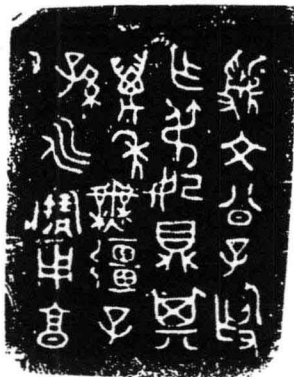 虢文公子段
乍叔妃鼎其
萬年無疆子
孫永寶用享